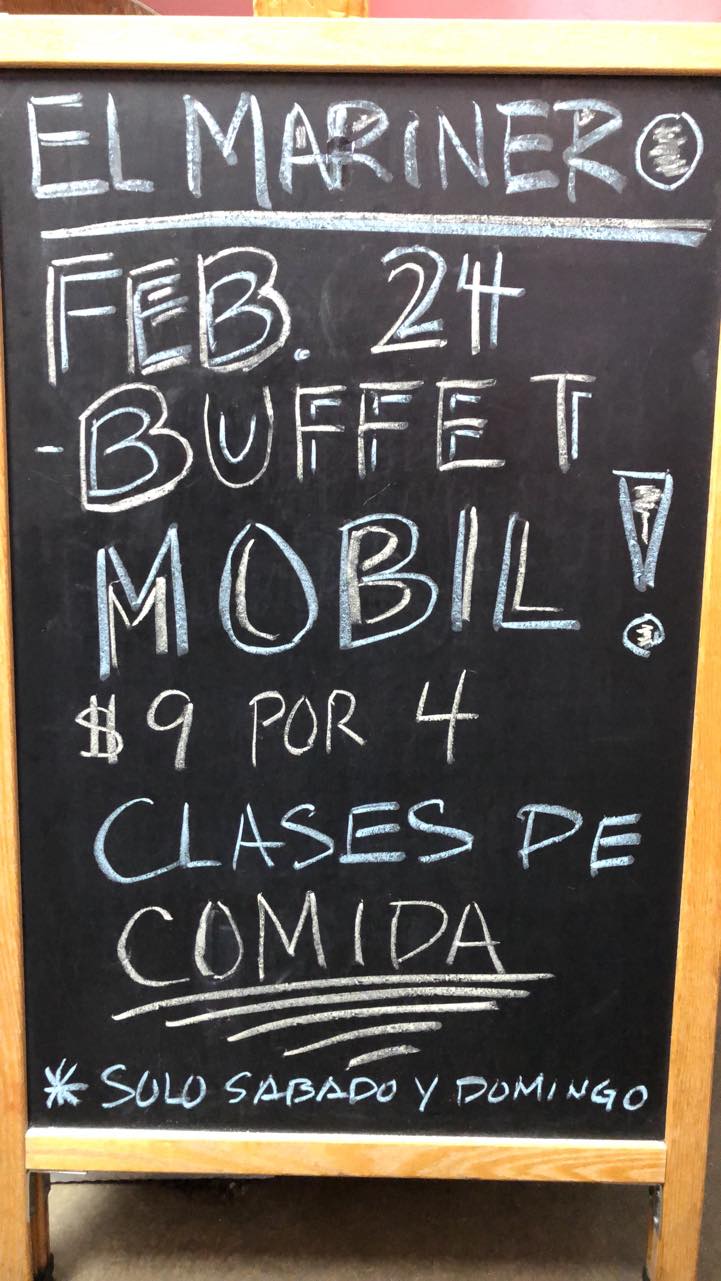 EL MARINERO
FEB. 24
-BUFFET
MOBIL!
$9 POR 4
CLASES DE
COMIDA
* SOLO SABADO Y DOMINGO